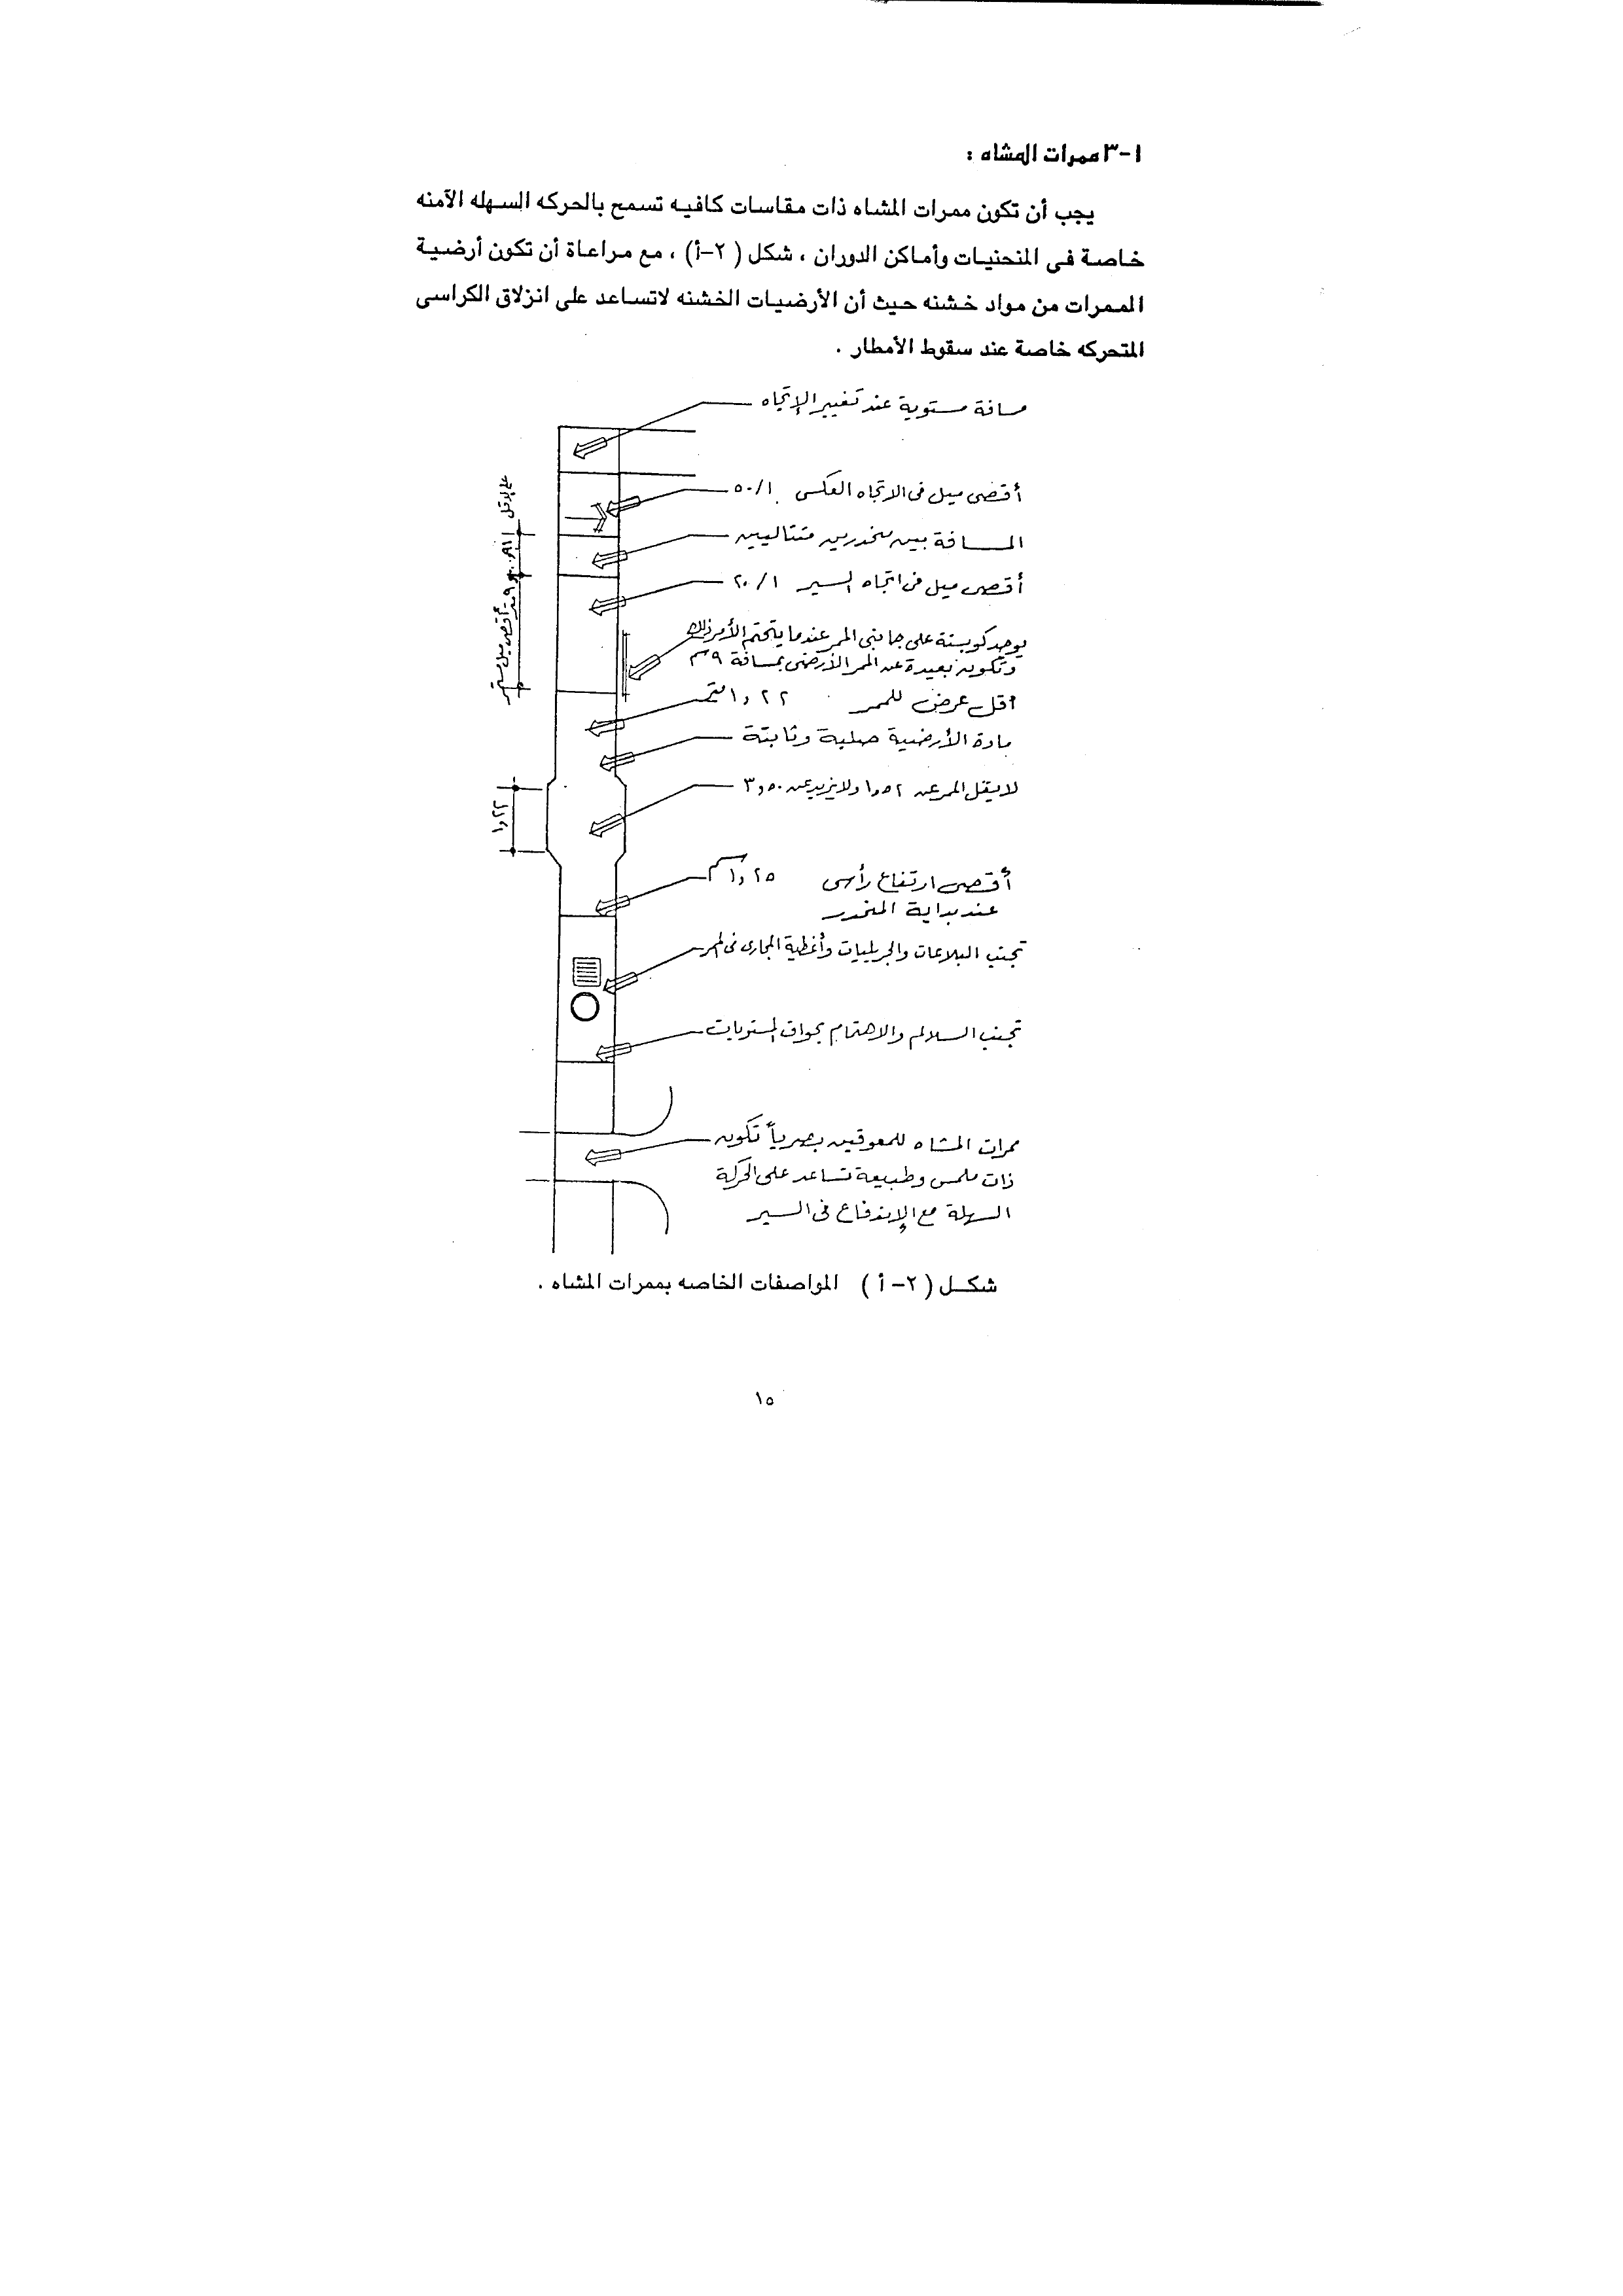 ١-٣ ممرات المشاه :
يجب أن تكون ممرات المشاه ذات مقاسات كافيه تسمح بالحركه السهله الآمنه
خاصة فى المنحنيات وأماكن الدوران ، شكل ( ٢-أ) ، مع مراعاة أن تكون أرضية
الممرات من مواد خشنه حيث أن الأرضيات الخشنه لاتساعد على انزلاق الكراسى
المتحركه خاصة عند سقوط الأمطار .
مسافة مستوية عند تغيير الإتجاه
أقصى ميل فى الاتجاه العكسى ١/٥٠
المسافة بين منحدرين متتاليين
أقصى ميل فى اتجاه السير ١/٢٠
يوجد كوبستة على جانبى الممر عندما يتحتم الأمر ذلك
وتكون بعيدة عن الممر الأرضى بمسافة ٩سم
أقل عرض للممر ١,٢٢ متر
مادة الأرضية صلبة وثابتة
لايقل الممر عن ١,٥٢ ولايزيد عن ٣,٥٠
أقصى ارتفاع رأسى ١,٢٥سم
عند بداية المنحدر
تجنب البلاعات والجريليات وأغطية المجارى فى الممر
تجنب السلالم والاهتمام بحواف المستويات
ممرات المشاه للمعوقين بصرياً تكون
ذات ملمس وطبيعة تساعد على الحركة
السهلة مع الإندفاع فى السير
على الاقل
أقصى ميل مستمر
١,٢٢
شكل ( ٢- أ ) المواصفات الخاصه بممرات المشاه .
١٥